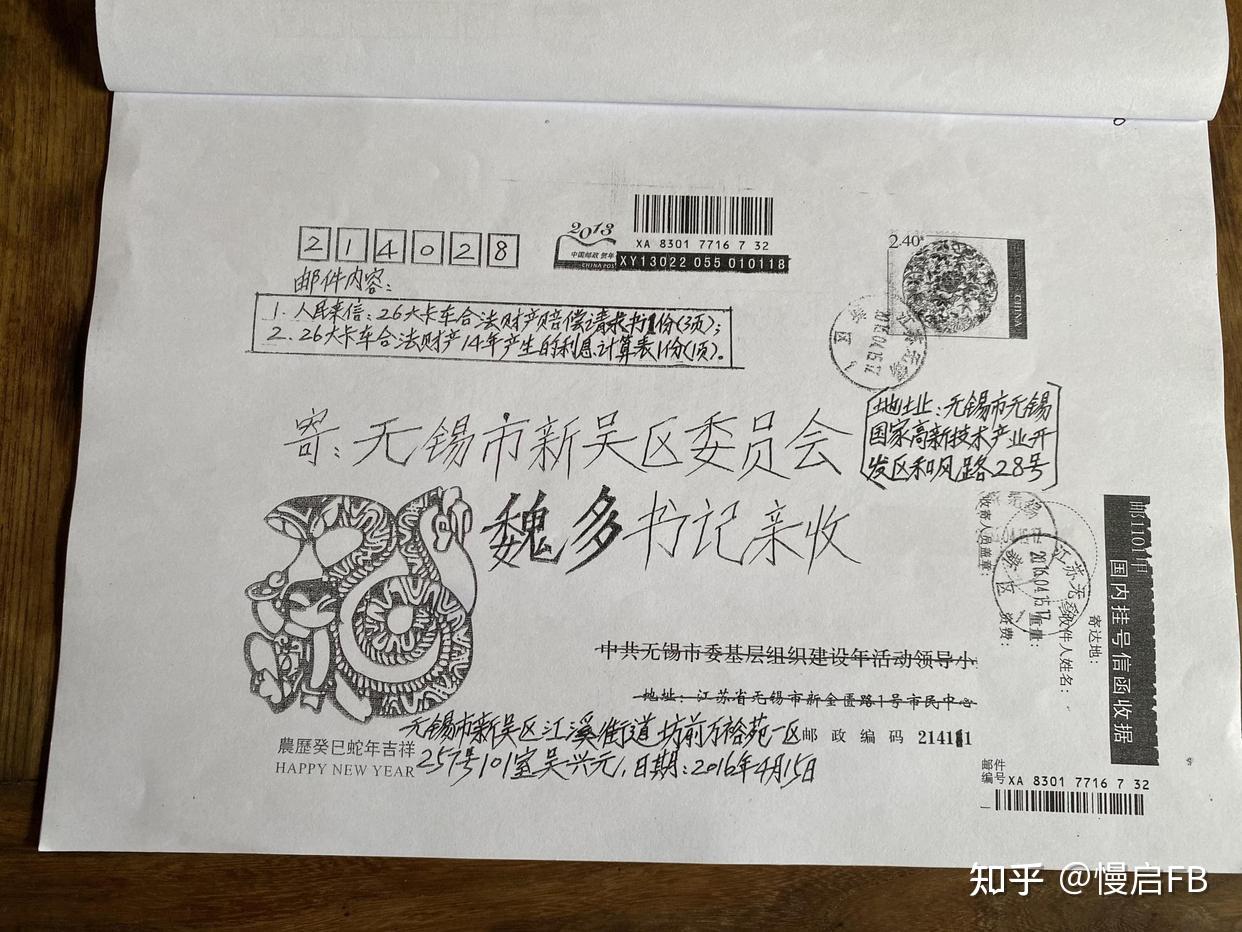 214028
2013
中国邮政 贺年
CHINA POST
XA 8301 7716 7 32
XY13022 055 010118
2.40
CHINA
邮件内容:
1. 人民来信:26大卡车合法财产赔偿请求书1份(3页);
2. 26大卡车合法财产14年产生的利息计算表1份(1页)。
寄:无锡市新吴区委员会
魏多书记亲收
地址:无锡市无锡
国家高新技术产业开
发区和风路28号
江苏无锡
2016.04.15.17
收寄人员盖章:
江苏无锡
2016.04.15.17
重量:
资费:
收件人姓名:
寄达地:
国内挂号信函收据
邮1101甲
中共无锡市委基层组织建设年活动领导小
地址:江苏省无锡市新金匮路1号市民中心
无锡市新吴区江溪街道坊前万裕苑一区
邮政编码 214111
257号101室吴兴元,日期:2016年4月15日
農歷癸巳蛇年吉祥
HAPPY NEW YEAR
邮件
编号 XA 8301 7716 7 32
知乎 @慢启FB